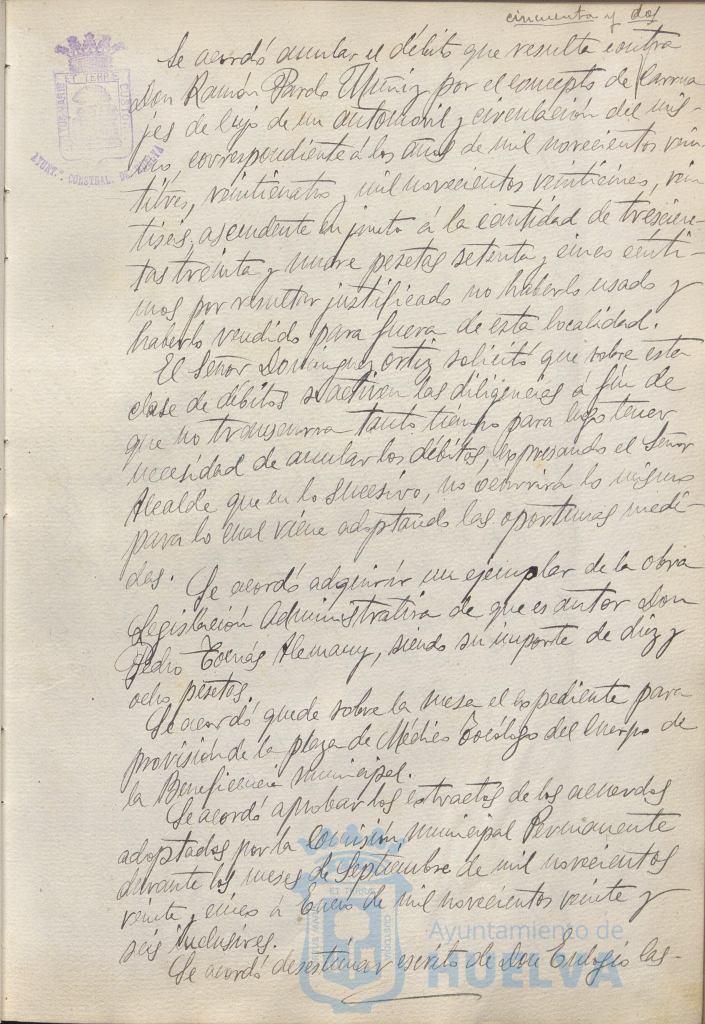 cincuenta y dos
Se acordó anular el débito que resulta contra
Don Ramón Pardo Muñiz por el concepto de Carrua
jes de lujo de un automóvil y circulación del mis-
mo, correspondiente á los años de mil novecientos vein
titres, veinticuatro y mil novecientos veinticinco, vein
tiseis, ascendente en junto á la cantidad de trescien-
tas treinta y nueve pesetas setenta y cinco cénti-
mos por resultar justificado no haberlo usado y
haberlo vendido para fuera de esta localidad.
El Señor Dominguez Ortiz solicitó que sobre esta
clase de débitos se activen las diligencias á fin de
que no transcurra tanto tiempo para luego tener
necesidad de anular los débitos, expresando el Señor
Alcalde que en lo sucesivo, no ocurrirá lo mismo
para lo cual viene adoptando las oportunas medi-
das.
Se acordó adquirir un ejemplar de la obra
Legislación Administrativa de que es autor Don
Pedro Tomás Alemany, siendo su importe de diez y
ocho pesetas.
Se acordó quede sobre la mesa el expediente para
provisión de la plaza de Médico Tocólogo del Cuerpo de
la Beneficencia municipal.
Se acordó aprobar los extractos de los acuerdos
adoptados por la Comisión municipal Permanente
durante los meses de Septiembre de mil novecientos
veinte y cinco á Enero de mil novecientos veinte y
seis inclusives.
Se acordó desestimar escrito de Don Eulogio las-
AYUNT.º CONSTNAL. DE HUELVA
Ayuntamiento de
HUELVA